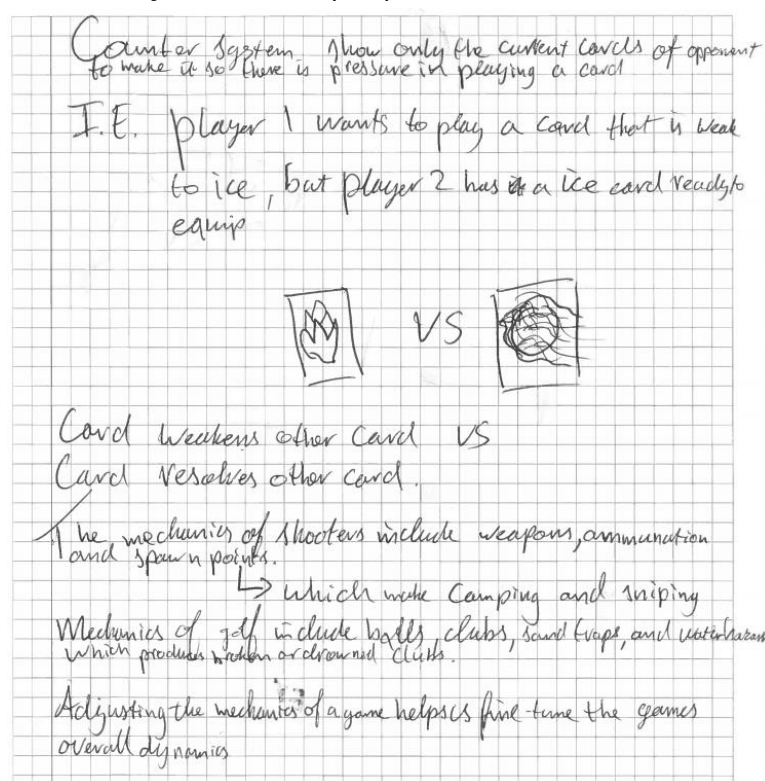 Counter System show only the current cards of opponent
to make it so there is pressure in playing a card
I.E. player 1 wants to play a card that is weak
to ice, but player 2 has a ice card ready to
equip
VS
Card weakens other card VS
Card resolves other card.
The mechanics of shooters include weapons, ammunation
and spawn points.
which make Camping and sniping
Mechanics of golf include balls, clubs, sand traps, and water hazards
which produces broken or drowned clubs.
Adjusting the mechanics of a game helps fine tune the games
overall dynamics